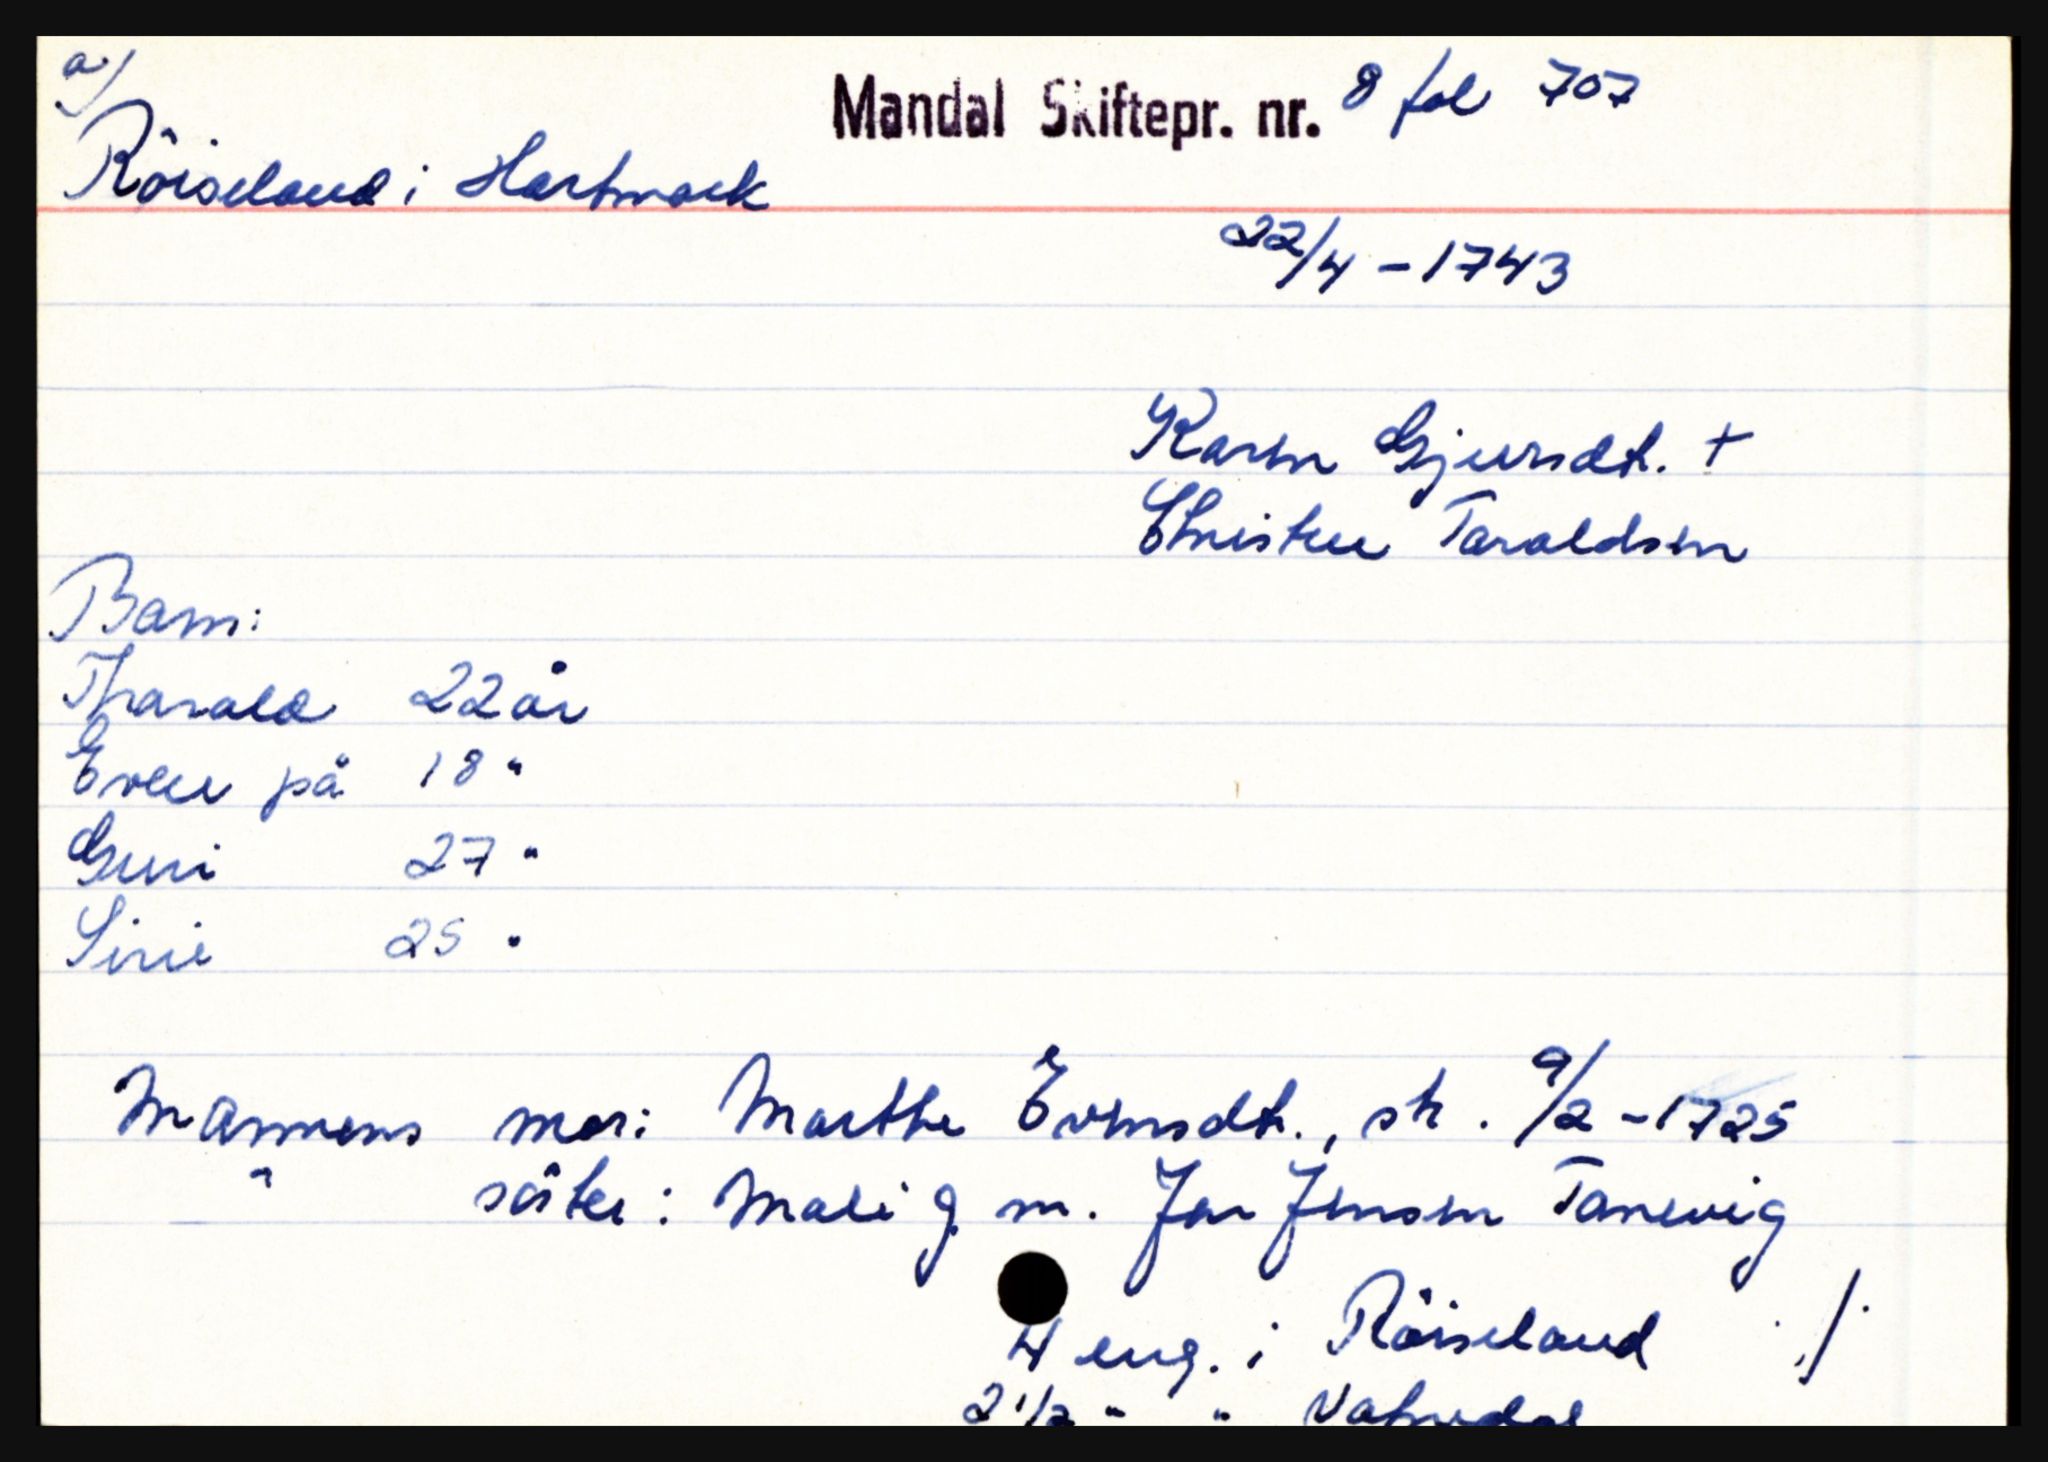 a/
Mandal Skiftepr. nr. 8 fol 707
Röiseland i Hartmark
22/4 - 1743
Karen Gjeursdt. +
Christen Taraldsen
Barn:
Tharald 22 år
Even på 18 "
Guri 27 "
Sirie 25 "
Mannens mor: Marthe Evensdt., sk. 9/2 - 1725
" söster: Mari g. m. Jon Jensen Tanevig
4 eng. i Röiseland ./.
2 1/2 " "